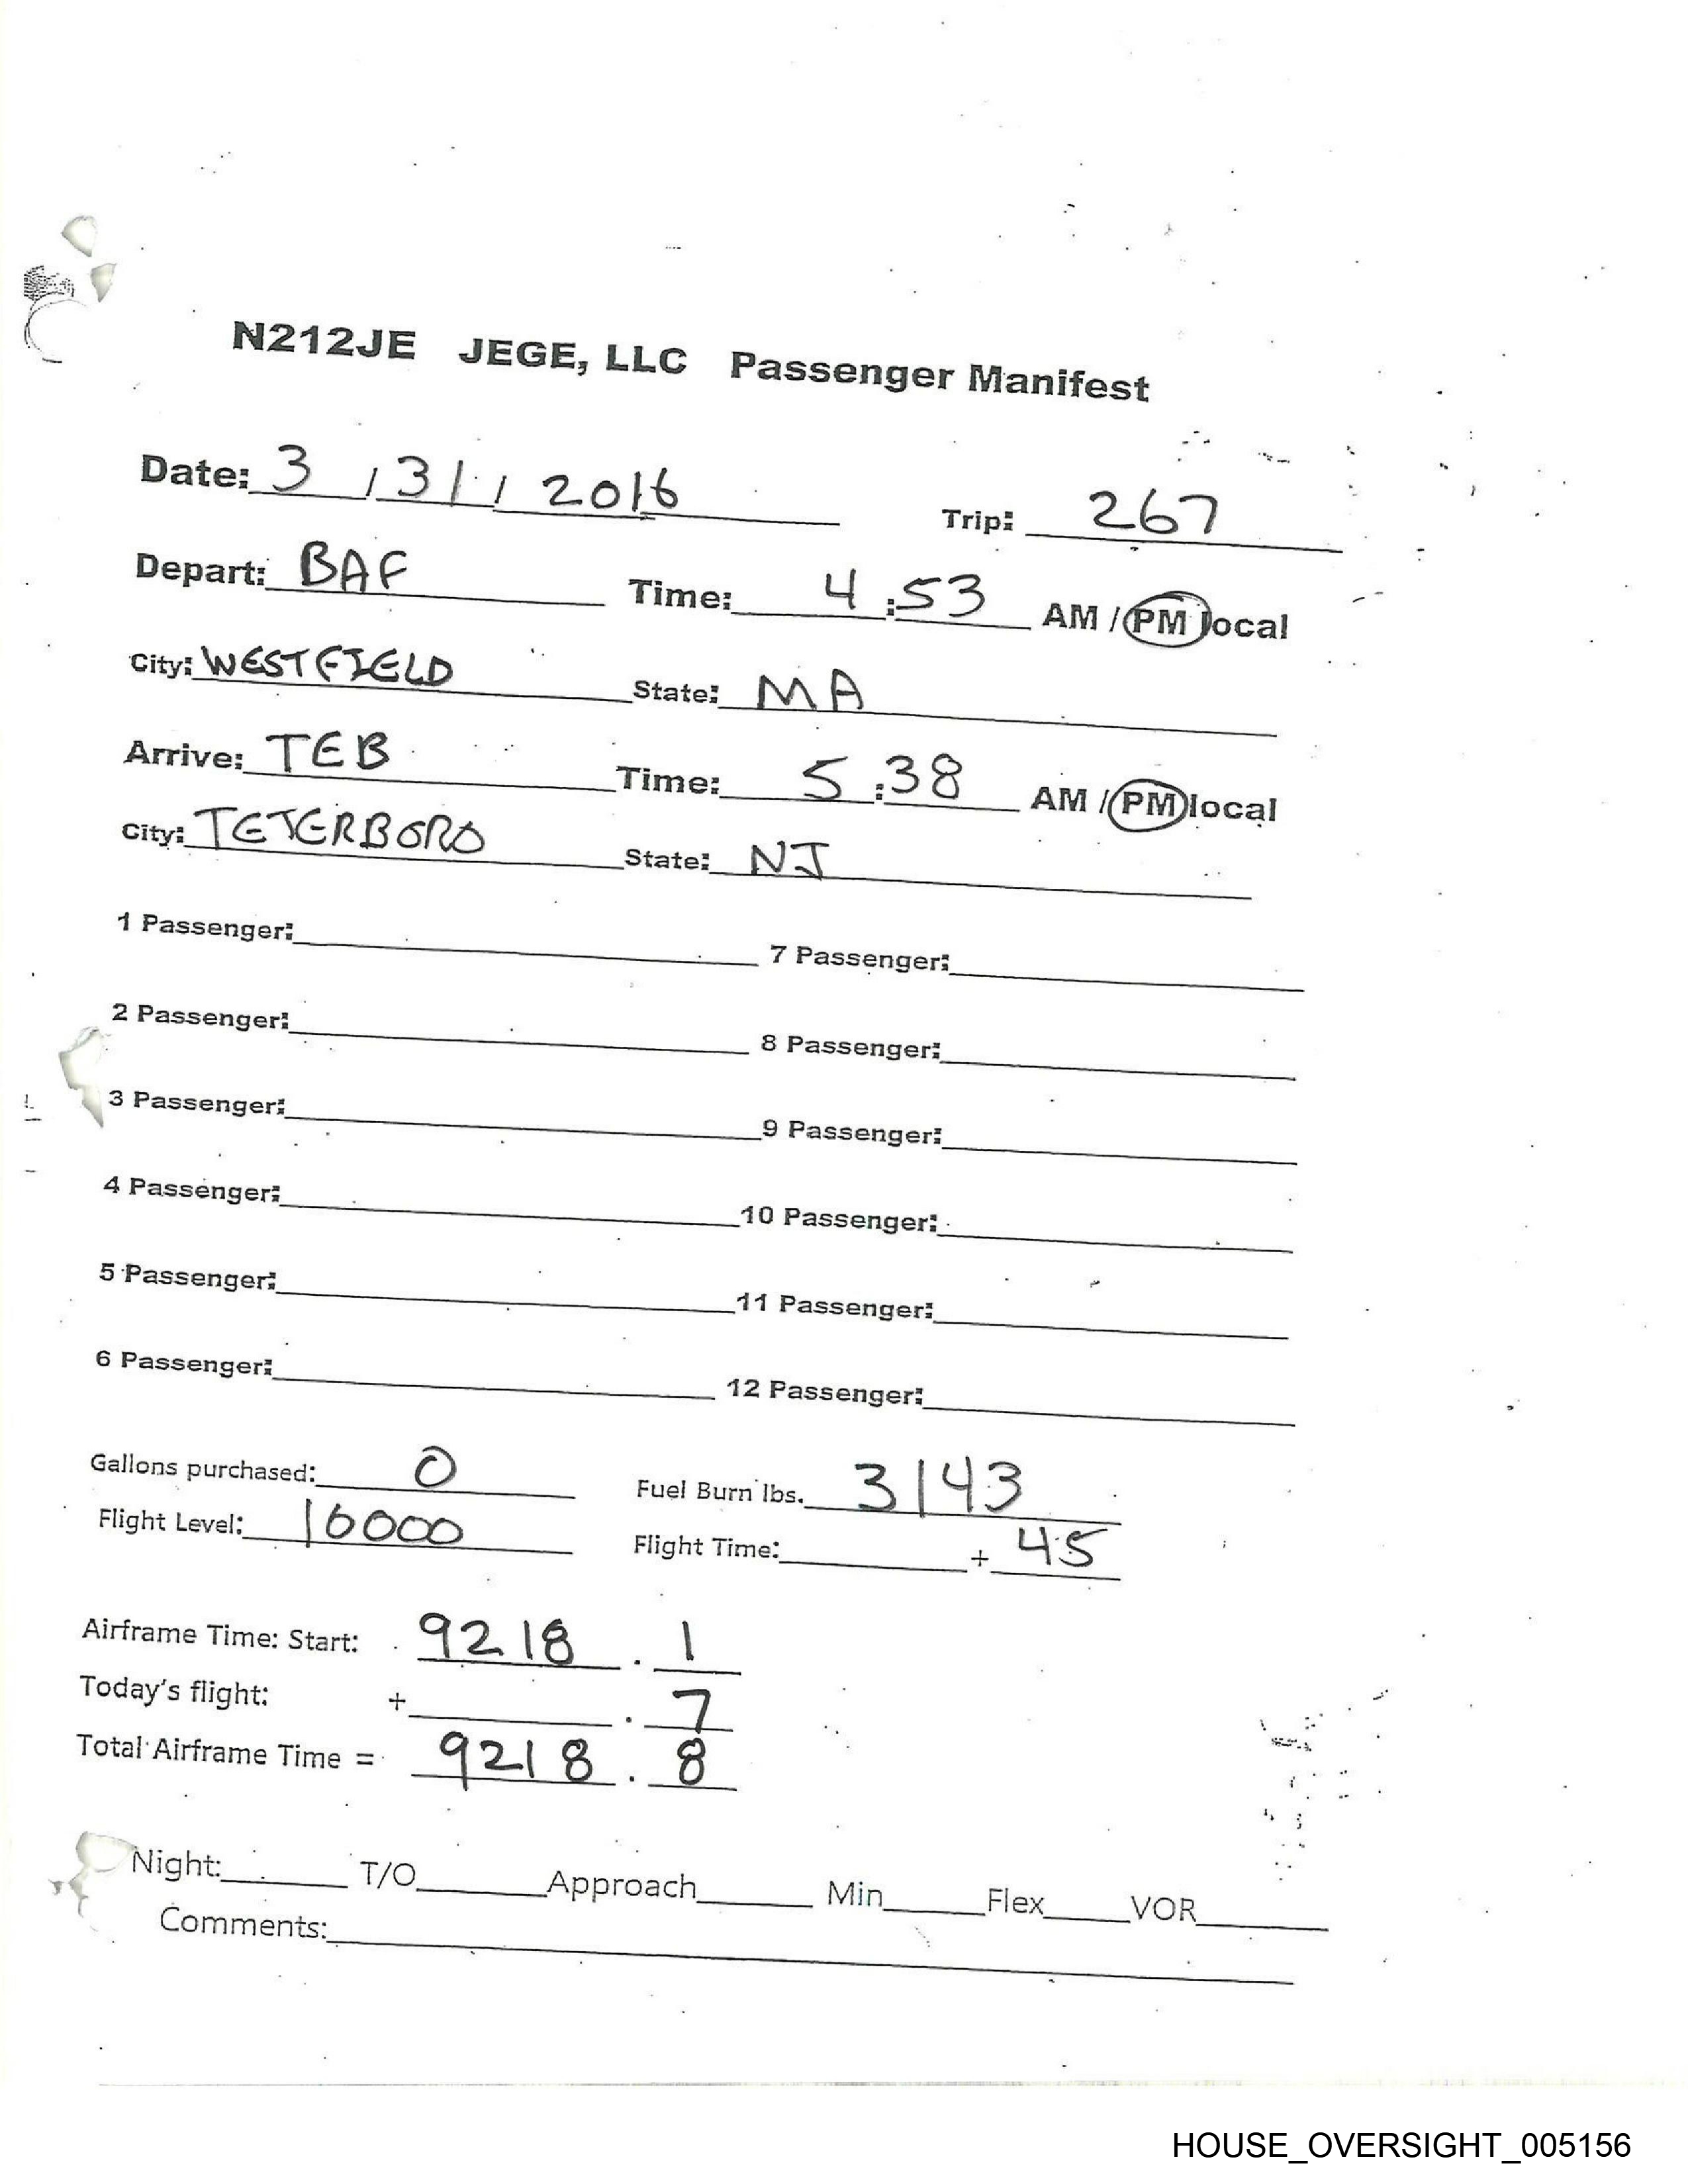 N212JE JEGE, LLC Passenger Manifest
Date: 3 / 31 / 2016 Trip: 267
Depart: BAF Time: 4:53 AM / PM local
City: WESTFIELD State: MA
Arrive: TEB Time: 5:38 AM / PM local
City: TETERBORO State: NJ
1 Passenger: 7 Passenger:
2 Passenger: 8 Passenger:
3 Passenger: 9 Passenger:
4 Passenger: 10 Passenger:
5 Passenger: 11 Passenger:
6 Passenger: 12 Passenger:
Gallons purchased: 0 Fuel Burn lbs. 3143
Flight Level: 16000 Flight Time: + 45
Airframe Time: Start: 9218 . 1
Today's flight: + . 7
Total Airframe Time = 9218 . 8
Night: T/O Approach Min Flex VOR
Comments:
HOUSE_OVERSIGHT_005156